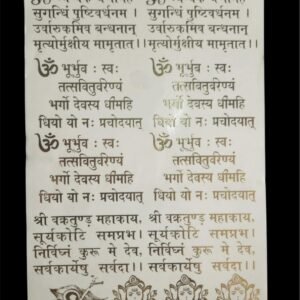 सुगन्धिं पुष्टिवर्धनम ।
उर्वारुकमिव बन्धनान्
मृत्योर्मुक्षीय मामृतात्।।
ॐ भूर्भुवः स्वः
तत्सवितुर्वरेण्यं
भर्गो देवस्य धीमहि
धियो यो नः प्रचोदयात्
ॐ भूर्भुवः स्वः
तत्सवितुर्वरेण्यं
भर्गो देवस्य धीमहि
धियो यो नः प्रचोदयात्
श्री वक्रतुण्ड महाकाय,
सूर्यकोटि समप्रभ।
निर्विघ्नं कुरू मे देव,
सर्वकार्येषु सर्वदा।।
सुगन्धिं पुष्टिवर्धनम ।
उर्वारुकमिव बन्धनान्
मृत्योर्मुक्षीय मामृतात्।।
ॐ भूर्भुवः स्वः
तत्सवितुर्वरेण्यं
भर्गो देवस्य धीमहि
धियो यो नः प्रचोदयात्
ॐ भूर्भुवः स्वः
तत्सवितुर्वरेण्यं
भर्गो देवस्य धीमहि
धियो यो नः प्रचोदयात्
श्री वक्रतुण्ड महाकाय,
सूर्यकोटि समप्रभ।
निर्विघ्नं कुरू मे देव,
सर्वकार्येषु सर्वदा।।